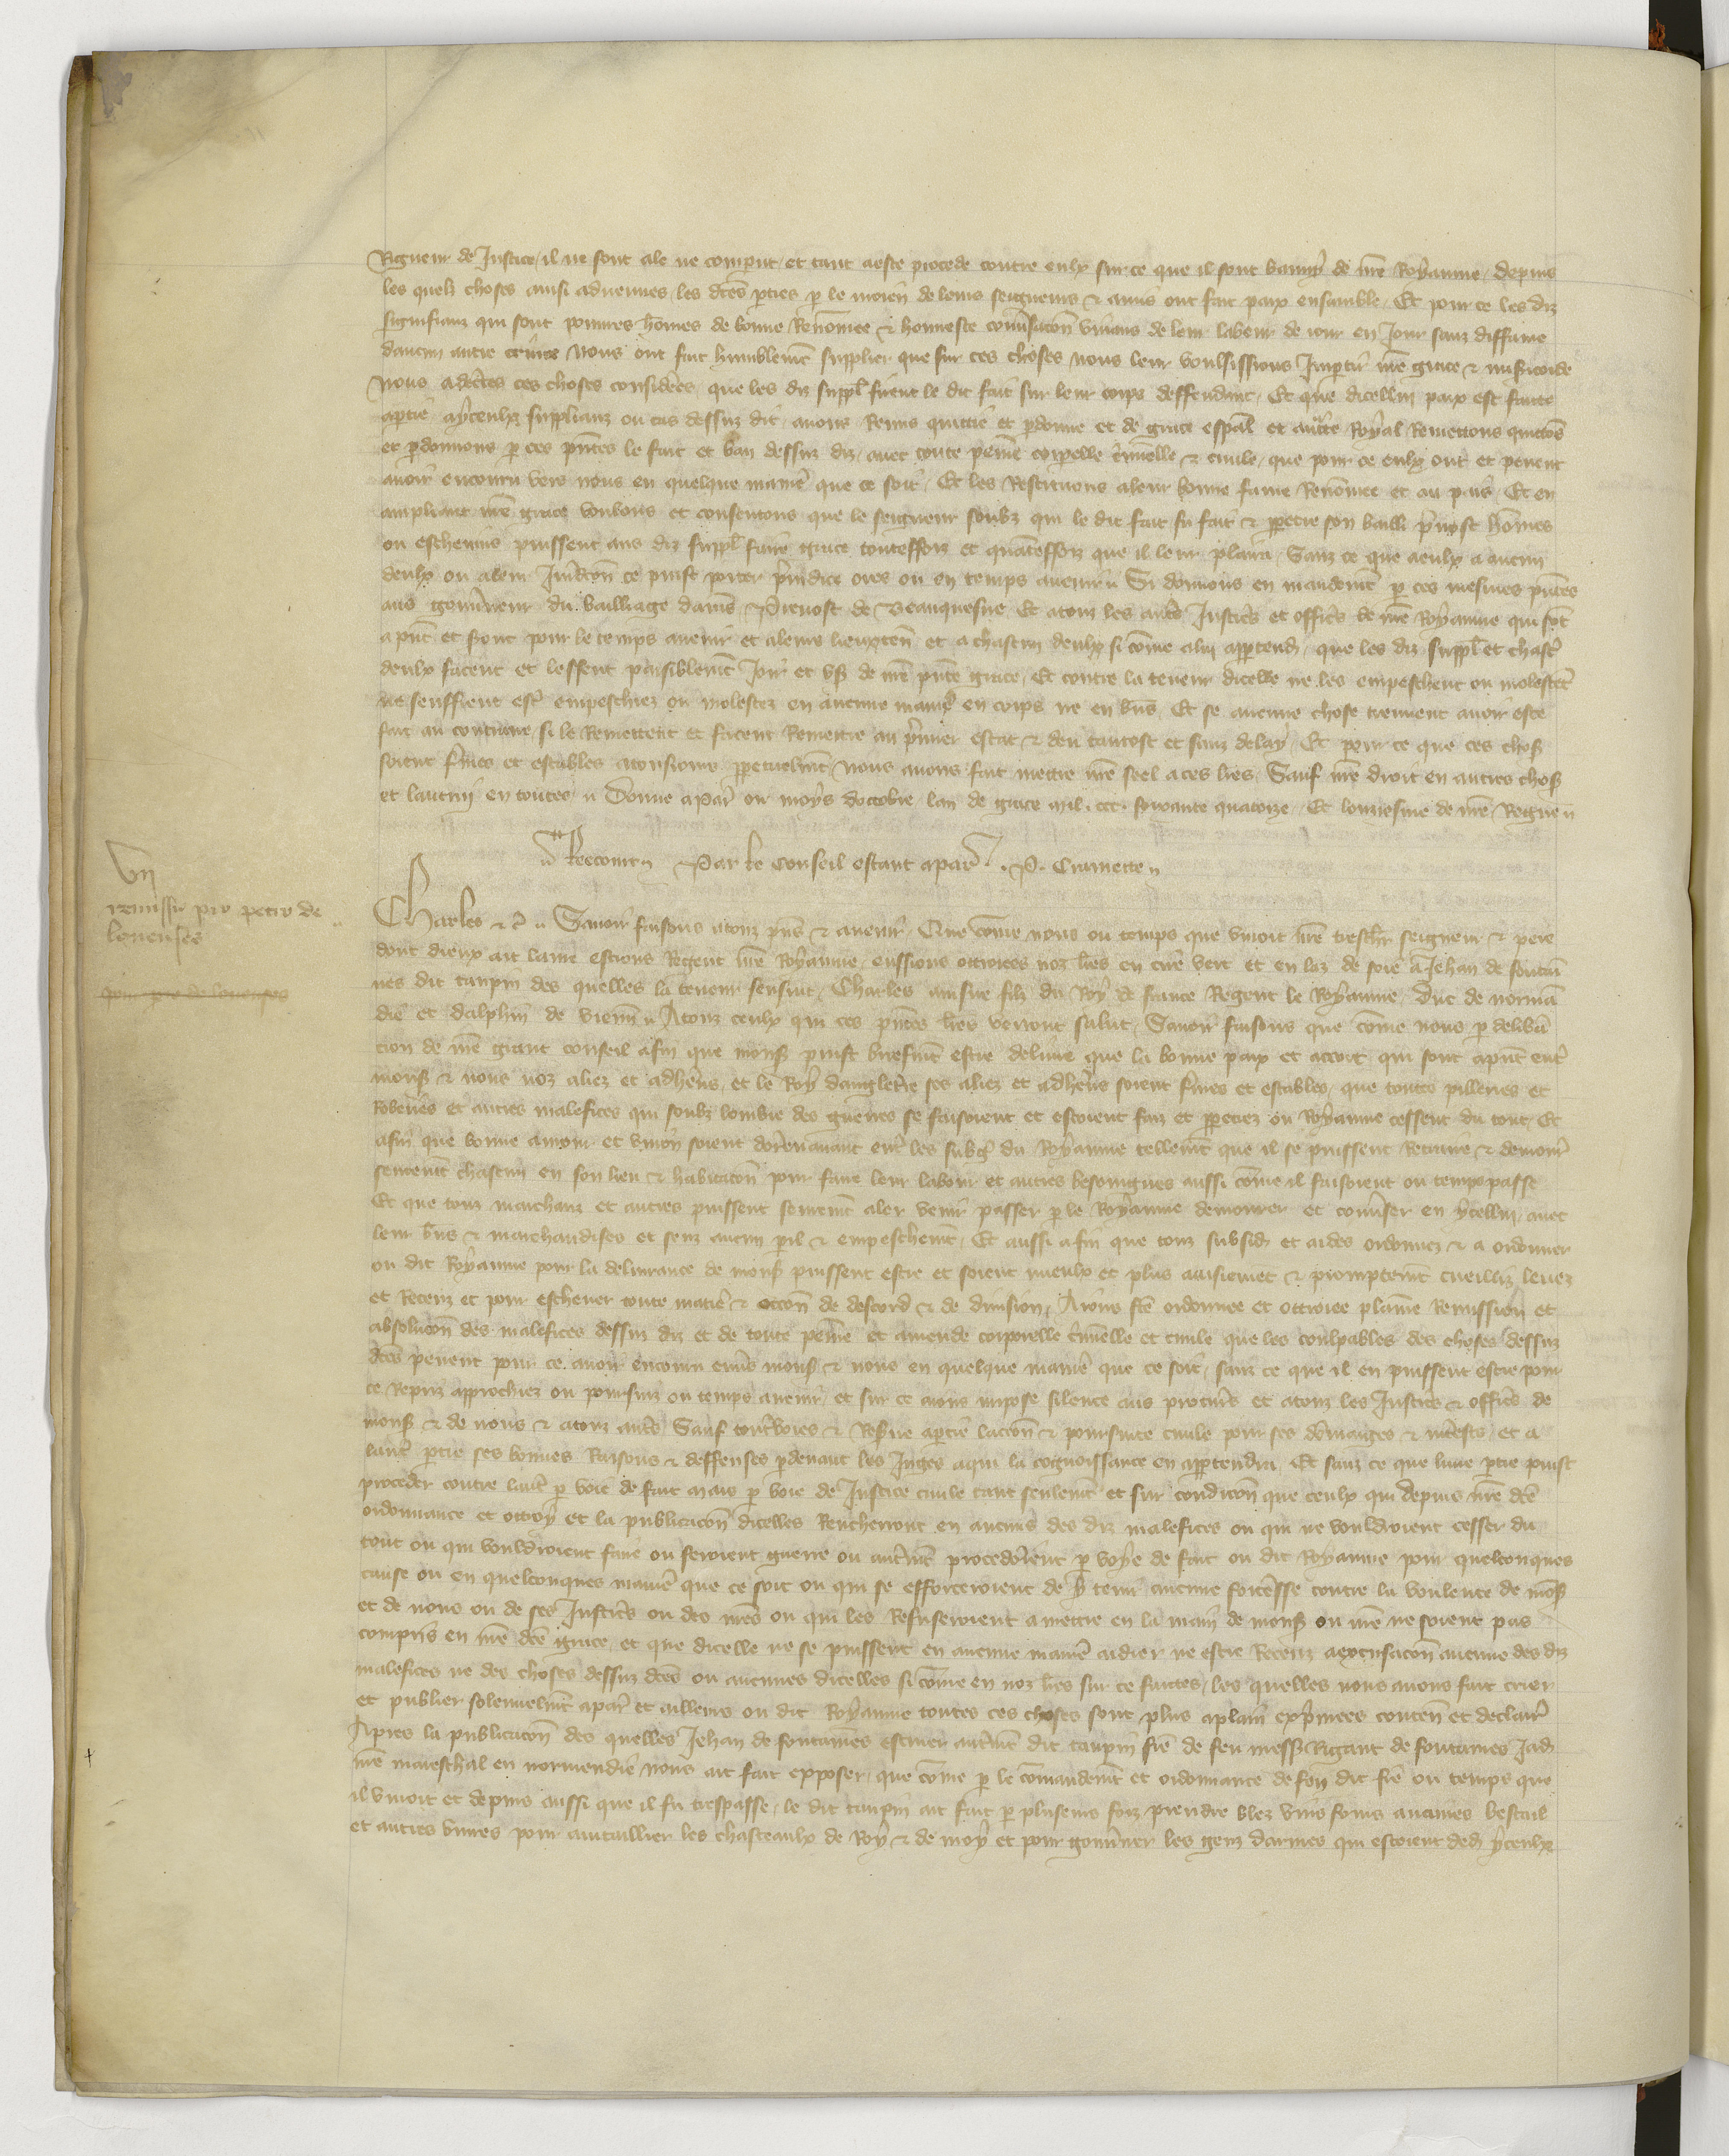 Rigueur de Justice il ne sont ale ne comparut et tant a este procede contre eulx sur ce que il sont banniz de nr̃e Royaume, depuis
les quelx choses ainsi advenues les dc̃es pties p le moien de leurs seigneurs & amis ont fait paix ensamble, Et pour ce les diz
signifianz qui sont poures hom̃es de bonne Renom̃ee & honneste conũsacõn vivans de leur labeur de iour en jour sanz diffame
daucun autre crime Nous ont fait humblem̃t supplier que sur ces choses nous leur voulsissions Impartir nr̃e grace & mis̃icorde
Nous adc̃tes ces choses consider̃es, que les diz suppl̃ firent le dit fait sur leur corps deffendant, Et que dicellui paix est faicte
aptie aycculx supplianz ou cas dessuz dit avons Remis quittie et pdonne et de grace esp̃al et auct̃e Royal Remettons quittõs
et pdonnons p ces pñtes le fait et ban dessuz diz, avec toute peine corporelle crim̃elle & civile, que pour ce eulx ont et pevent
avoir encouru vers nous en quelque manier̃ que ce soit, Et les Restituons a leur bonne fame Renom̃ee et au pais, Et en
ampliant nr̃e grace voulons et consentons que le seigneur soubz qui le dit fait fu fait & ppetre son bailli p̃vost hom̃es
ou eschevins puissent aus diz suppl̃ faire grace touteffoiz et quanteffoiz que il leur plaira, Sanz ce que a eulx a aucun
deulx ou a leur Jurid̃con ce puist porter p̃iudice ores ou en temps avenir, Si donnons en mandem̃t p ces mesmes pñtes
aus gouṽneur du bailliage damiẽs & Prevost de Beauquesne Et a touz les autr̃s Justic̃s et offic̃s de nr̃e Royaume qui sõt
apñt et seront pour le temps avenir et a leurs lieuxten̄ et a chascun deulx si com̃e a lui appartend̃ que les diz suppl̃ et chasc̃
deulx facent et lessent paisiblem̃t Joir et us̃ de nr̃e pñte grace, Et contre la teneur dicelle ne les empeschent ou molestẽt
ne seuffrent estr̃ empeschiez ou molestez en aucune manier̃ en corps ne en biẽs, Et se aucune chose treuvent avoir este
fait au contraire si le Remettent et facent Remettre au p̃mier estat & deu tantost et sanz delay, Et pour ce que ces chos̃
soient fermes et estables a tousiours ppetuelm̃t nous avons fait mettre nr̃e seel a ces lr̃es Sauf nr̃e droit en autres chos̃
et lautrui en toutes, Donne a Par̃ ou moys doctobre lan de grace mil. ccc. soixante quatorze, Et lonziesme de nr̃e Regne
Par le conseil estant a par̃. P. Cramette
VII
remissio pro petro de
Charles &c̃ Savoir faisons a touz pñs & avenir, Que com̃e nous ou temps que vivoit nr̃e treschr̃ seigneur & pere
dont dieux ait lame estions Regent nr̃e Royaume, eussions ottroiees noz lr̃es en cire vert et en laz de soie a Jehan de fontai
nes dit taupin des quelles la teneur sensuit, Charles ainsne filz du Roy de france Regent le Royaume, Duc de normã
die et dalphin de vienñ A touz ceulx qui ces pñtes lr̃es verront salut, Savoir faisons que com̃e nous p delibera
tion de nr̃e grant conseil afin que mons̃ puist briefm̃t estre delivre que la bonne paix et accort qui sont apñt entr̃
mons̃ & nous noz aliez et adher̃ns, et le Roy dangleterre ses aliez et adher̃ns soient fermes et estables, que toutes pilleries et
Roberies et autres malefices qui soubz lombre des guerres se faisoient et estoient faiz et ppetrez ou Royaume cessent du tout, Et
afin que bonne amour et union soient dorenavant entr̃ les subgiz du Royaume tellem̃t que il se puissent Retraire & demour̃
seurem̃t chascun en son lieu & habitacõn pour faire leur labour et autres besoingnes aussi com̃e il faisoient ou temps passe
Et que touz marchanz et autres puissent seurem̃t aler venir passer p le Royaume demourer et conṽser en ycellui, avec
leur biẽs & marchandises et senz aucun pil & empeschem̃t, Et aussi afin que touz subsid̃ et aides ordonnez & a ordonner
ou dit Royaume pour la delivrance de mons̃ puissent estre et soient mieulx et plus aisiemẽt & promptem̃t cueilliz levez
et Receuz et pour eschever toute matier̃ & occõn de descord & de division, Avons fc̃e ordonnee et ottroiee plaine Remission et
absolucõn des malefices dessuz diz et de toute peine et amende corporelle crim̃elle et civile que les coulpables des choses dessuz
dc̃es pevent pour ce avoir encouru env̄s mons̃ & nous en quelque manier̃ que ce soit, sanz ce que il en puissent estre pour
ce Repriz approchiez ou poursuiz ou temps avenir, et sur ce avons impose silence aus procur̃s et a touz les Justic̃s & offic̃s de
mons̃ & de nous & a touz autr̃s Sauf toutevoies & Reserve aptie laccõn & poursuite civile pour ses dom̃ages & inter̃ests, et a
lautr̃ ptie ses bonnes Raisons & deffenses pdevant les Juges a qui la cognoissance en appartendra, Et sanz ce que lune ptie puist
proceder contre lautr̃ p voie de fait mais p voie de Justice civile tant seulem̃t et sur condicõn que ceulx qui depuis nr̃e dc̃e
ordonnance et ottroy et la publicacõn dicelles Rencherront en aucuns des diz malefices ou qui ne vouldroient cesser du
tout ou qui vouldroient faire ou feroient guerre ou autrem̃t procederoient p voye de fait ou dit Royaume pour quelconques
cause ou en quelconques manier̃ que ce soit ou qui se efforceroient de y tenir aucune forteresse contre la voulente de mons̃
et de nous ou de ses Justic̃s ou des nr̃es ou qui les Refuseroient a mettre en la main de mons̃ ou nr̃e ne soient pas
compris en nr̃e dc̃e grace, et que dicelle ne se puissent en aucune manier̃ aidier ne estre Receuz a excusacõn aucune des diz
malefices ne des choses dessuz dc̃es ou aucunes dicelles si com̃e en noz lr̃es sur ce faictes, les quelles nous avons fait crier
et publier solennelm̃t a par̃ et ailleurs ou dit Royaume toutes ces choses sont plus aplain exp̃mees conten̄ et declair̃
Apres la publicacõn des quelles Jehan de fontaines escuier autrem̃t dit taupin fr̃e de feu mess̃ Rigaut de fontaines Jad̃
nr̃e mareschal en normendie nous ait fait exposer, que com̃e p le com̃andem̃t et ordonnance de son dit fr̃e ou temps que
il vivoit et depuis aussi que il fu trespasse, le dit taupin ait fait p pluseurs foiz prendre blez vins foins avaines bestail
et autres vivres pour avitaillier les chasteaulx de Roy & de moy et pour gouṽner les genz darmes qui estoient ded̃ yceulx